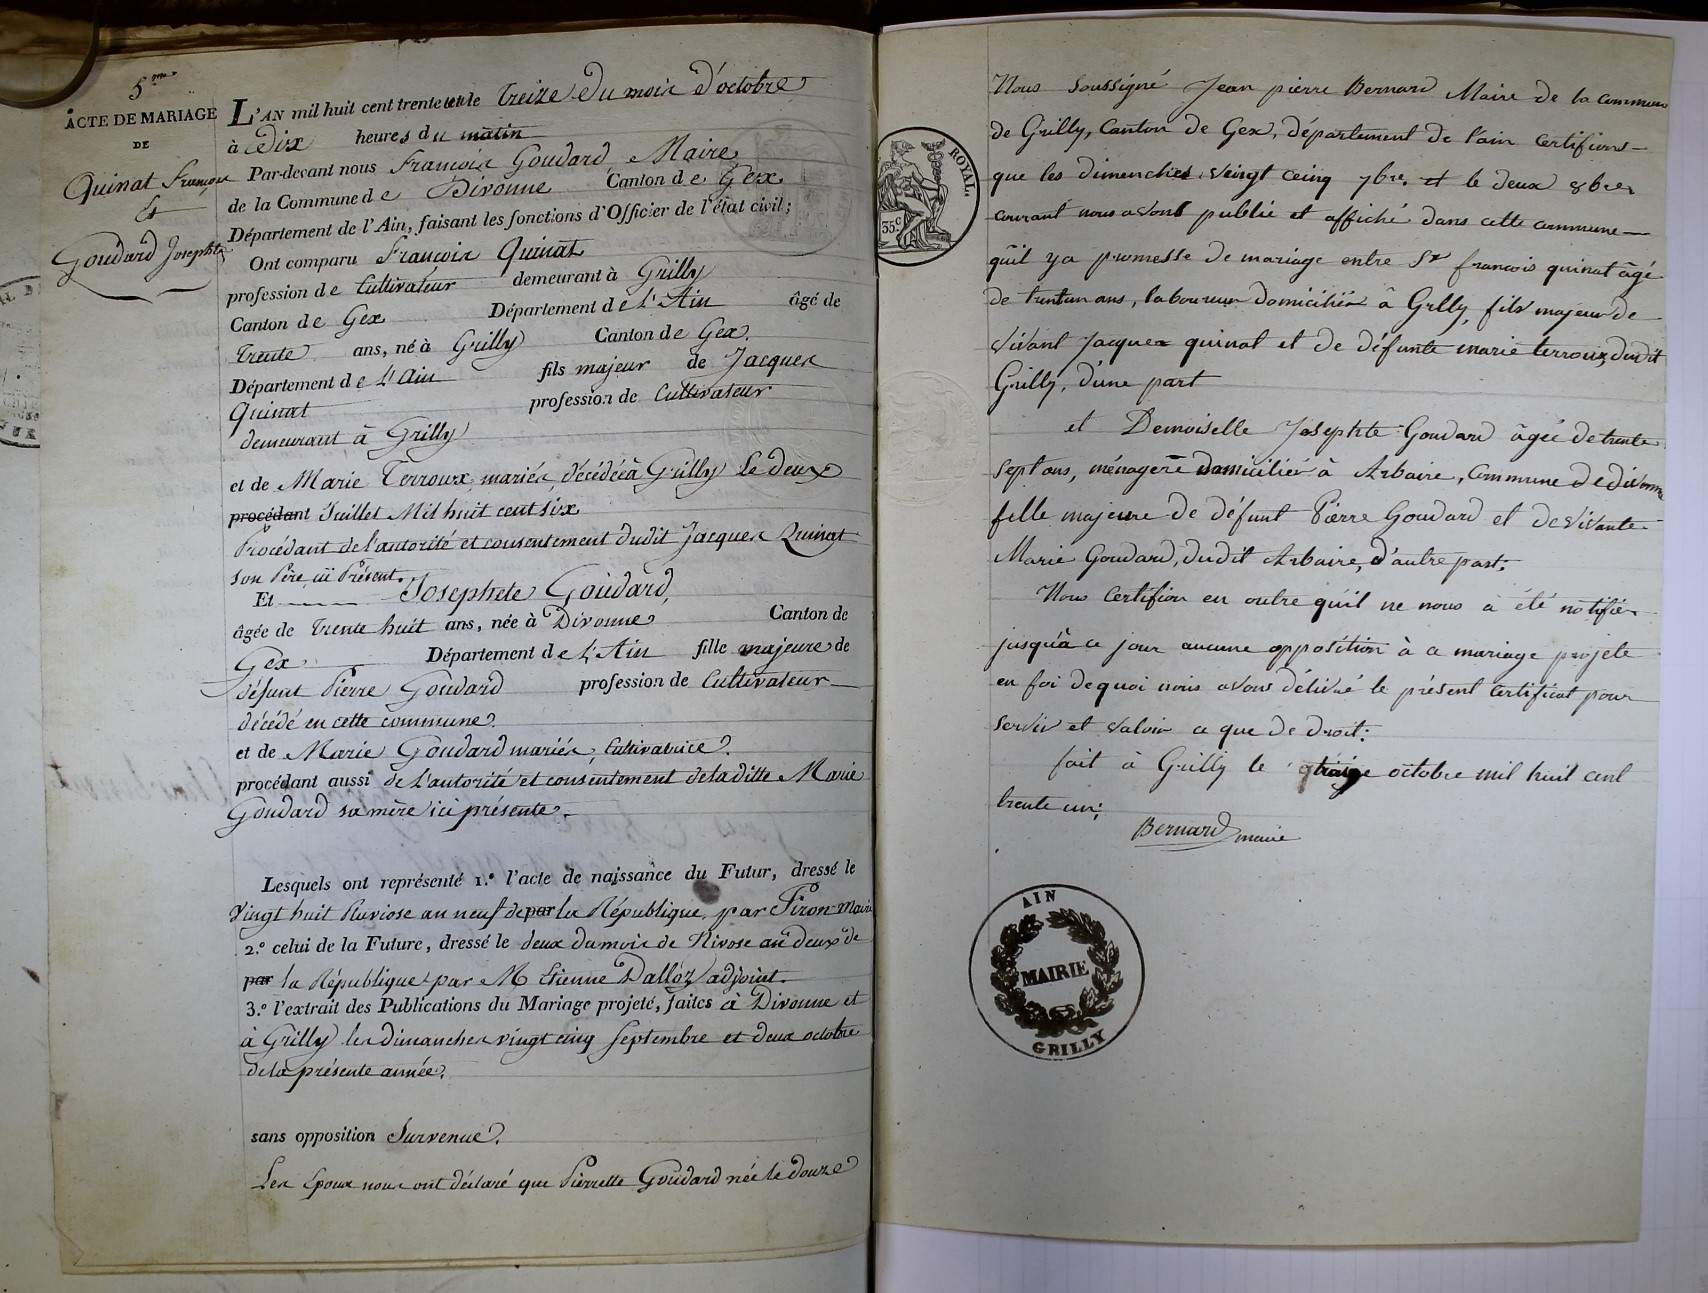 5me
ACTE DE MARIAGE
DE
Quinat François
Et
Goudard Josephte
L'AN mil huit cent trente et un le treize du mois d'octobre
à Dix heures du matin
Par-devant nous François Goudard, Maire
de la Commune de Divonne Canton de Gex
Département de l'Ain, faisant les fonctions d'Officier de l'état civil;
Ont comparu François Quinat
profession de Cultivateur demeurant à Grilly
Canton de Gex Département de L'Ain âgé de
trente ans, né à Grilly Canton de Gex.
Département de L'Ain fils majeur de Jacques
Quinat profession de Cultivateur
demeurant à Grilly
et de Marie Terroux, mariés, décédée à Grilly Le deux
procédant Juillet Mil huit cent six
Procédant de l'autorité et consentement dudit Jacques Quinat
son Père, ici Présent.
Et Josephete Goudard,
âgée de trente huit ans, née à Divonne Canton de
Gex Département de L'Ain fille majeure de
défunt Pierre Goudard profession de Cultivateur
décédé en cette commune.
et de Marie Goudard mariés, Cultivatrice.
procédant aussi de l'autorité et consentement de la ditte Marie
Goudard sa mère ici présente.
Lesquels ont représenté 1.º l'acte de naissance du Futur, dressé le
Vingt huit Pluviose an neuf de par la République, par Piron Maire
2.º celui de la Future, dressé le deux du mois de Nivose an deux de
par la République par M Etienne Dalloz adjoint.
3.º l'extrait des Publications du Mariage projeté, faites à Divonne et
à Grilly les dimanches vingt cinq septembre et deux octobre
de la présente année.
sans opposition Survenue.
Les Epoux nous ont déclaré que Pierrette Goudard née le douze
ROYAL.
35.C
Nous soussigné Jean pierre Bernard Maire de la Commune
de Grilly, Canton de Gex, département de l'ain Certifions
que les dimenches Veingt ceinq 7bre. et le deux 8bre
courant nous avons publié et affiché dans cette commune
qu'il y a promesse de mariage entre Sr françois quinat âgé
de trentun ans, laboureur domicilié à Grilly, fils majeur de
Vivant Jacques quinat et de défunte marie terroux, dudit
Grilly, d'une part
et Demoiselle Josephte Goudard âgée de trente
sept ans, ménagere domiciliée à Arbaire, Commune de divonne
fille majeure de défunt Pierre Goudard et de Vivante
Marie Goudard, dudit Arbaire, d'autre part;
Nous Certifion en outre qu'il ne nous a été notifié
jusqu'à ce jour aucune opposition à ce mariage projeté
en foi de quoi nous avons délivré le présent Certificat pour
servir et valoir ce que de droit:
fait à Grilly le octobre mil huit cent
trente un;
Bernard maire
AIN
MAIRIE
GRILLY